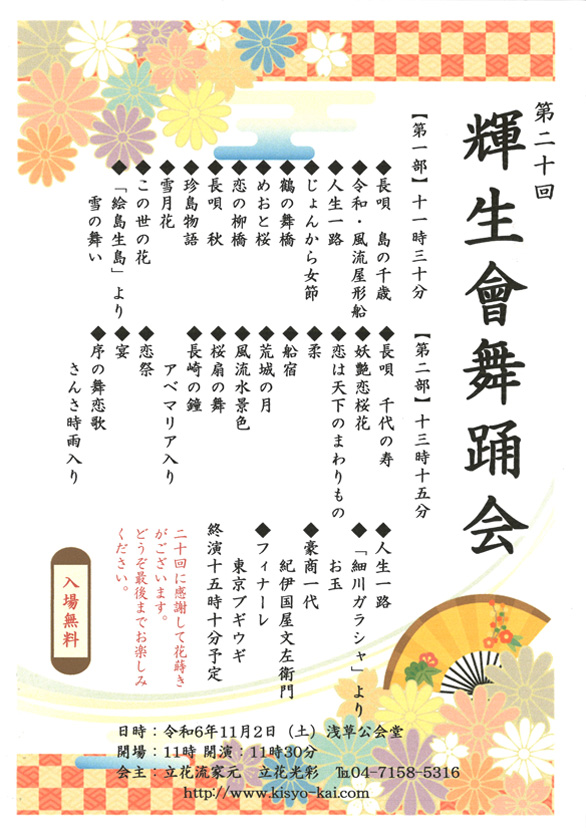 第二十回
輝生會舞踊会
【第一部】十一時三十分
◆長唄 島の千歳
◆令和・風流屋形船
◆人生一路
◆じょんから女節
◆鶴の舞橋
◆めおと桜
◆恋の柳橋
◆長唄 秋
◆珍島物語
◆雪月花
◆この世の花
◆「絵島生島」より
雪の舞い
【第二部】十三時十五分
◆長唄 千代の寿
◆妖艶恋桜花
◆恋は天下のまわりもの
◆柔
◆船宿
◆荒城の月
◆風流水景色
◆桜扇の舞
◆長崎の鐘
アベマリア入り
◆恋祭
◆宴
◆序の舞恋歌
さんさ時雨入り
◆人生一路
◆「細川ガラシャ」より
お玉
◆豪商一代
紀伊国屋文左衛門
◆フィナーレ
東京ブギウギ
終演十五時十分予定
二十回に感謝して花蒔き
がございます。
どうぞ最後までお楽しみ
ください。
入場無料
日時：令和6年11月2日（土）浅草公会堂
開場：11時 開演：11時30分
会主：立花流家元 立花光彩 ℡04-7158-5316
http://www.kisyo-kai.com